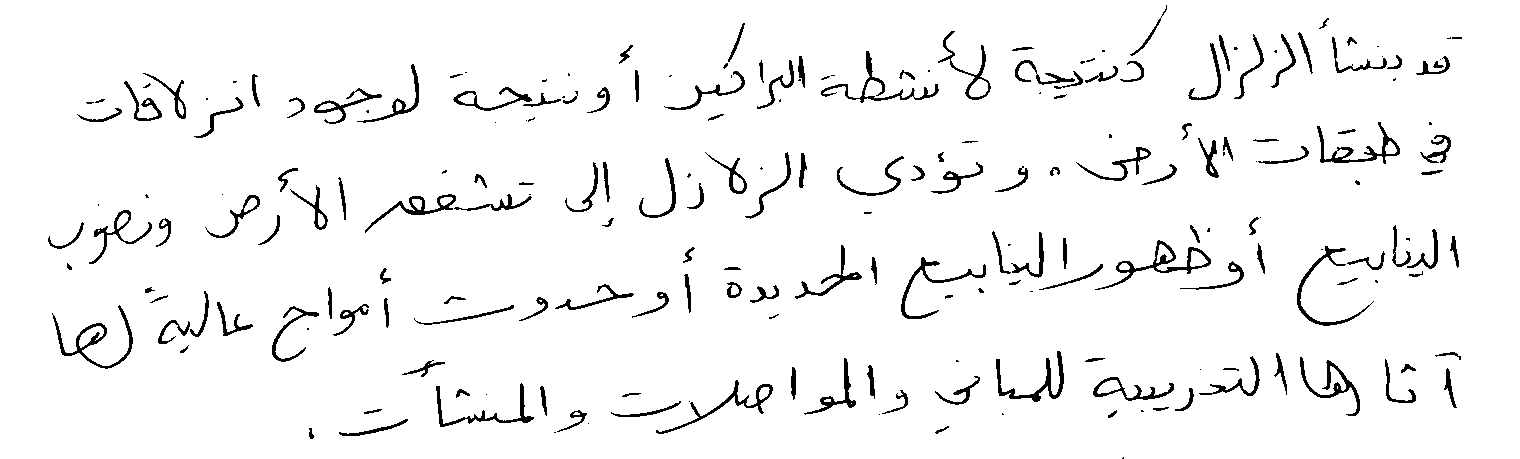 قد ينشأ الزلزال كنتيجة لأنشطة البراكين أو نتيجة لوجود انزلاقات
في طبقات الأرض. وتؤدي الزلازل إلى تشقق الأرض ونضوب
الينابيع أو ظهور الينابيع الجديدة أو حدوث أمواج عالية لها
آثارها التخريبية للمباني والمواصلات والمنشآت.